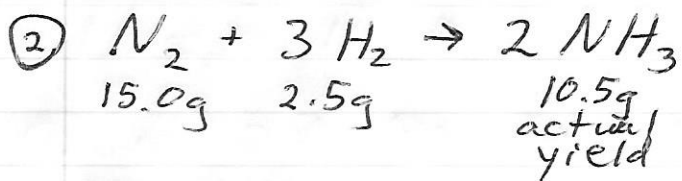 2. N₂ + 3 H₂ → 2 NH₃
15.0g 2.5g 10.5g
actual
yield